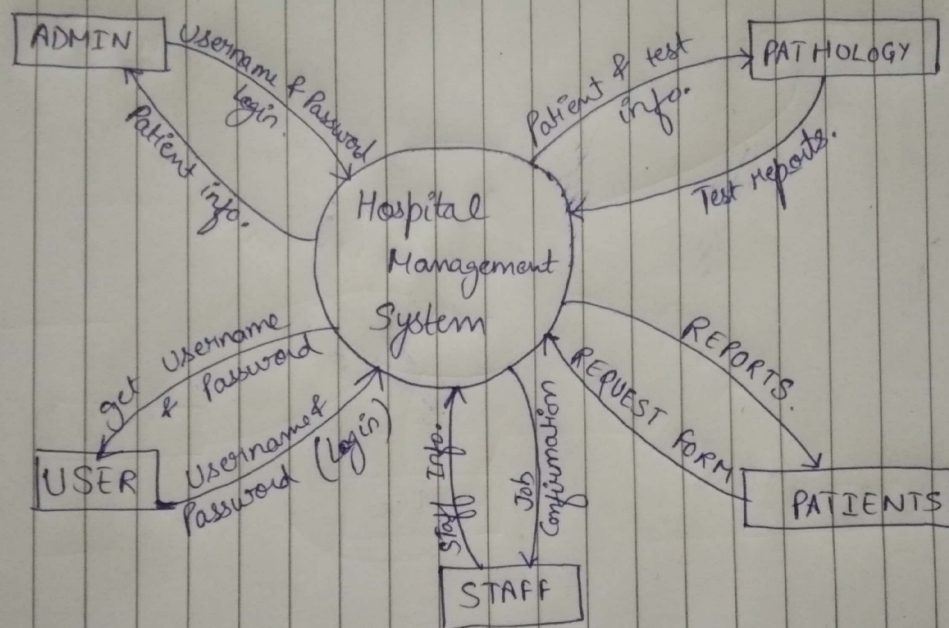 ADMIN
Username & Password
Login.
Patient info.
Patient & test
info.
PATHOLOGY
Test reports.
Hospital
Management
System
get Username
& Password
USER
Username &
Password (Login)
Staff Info.
Job
Confirmation
STAFF
REPORTS.
REQUEST FORM
PATIENTS